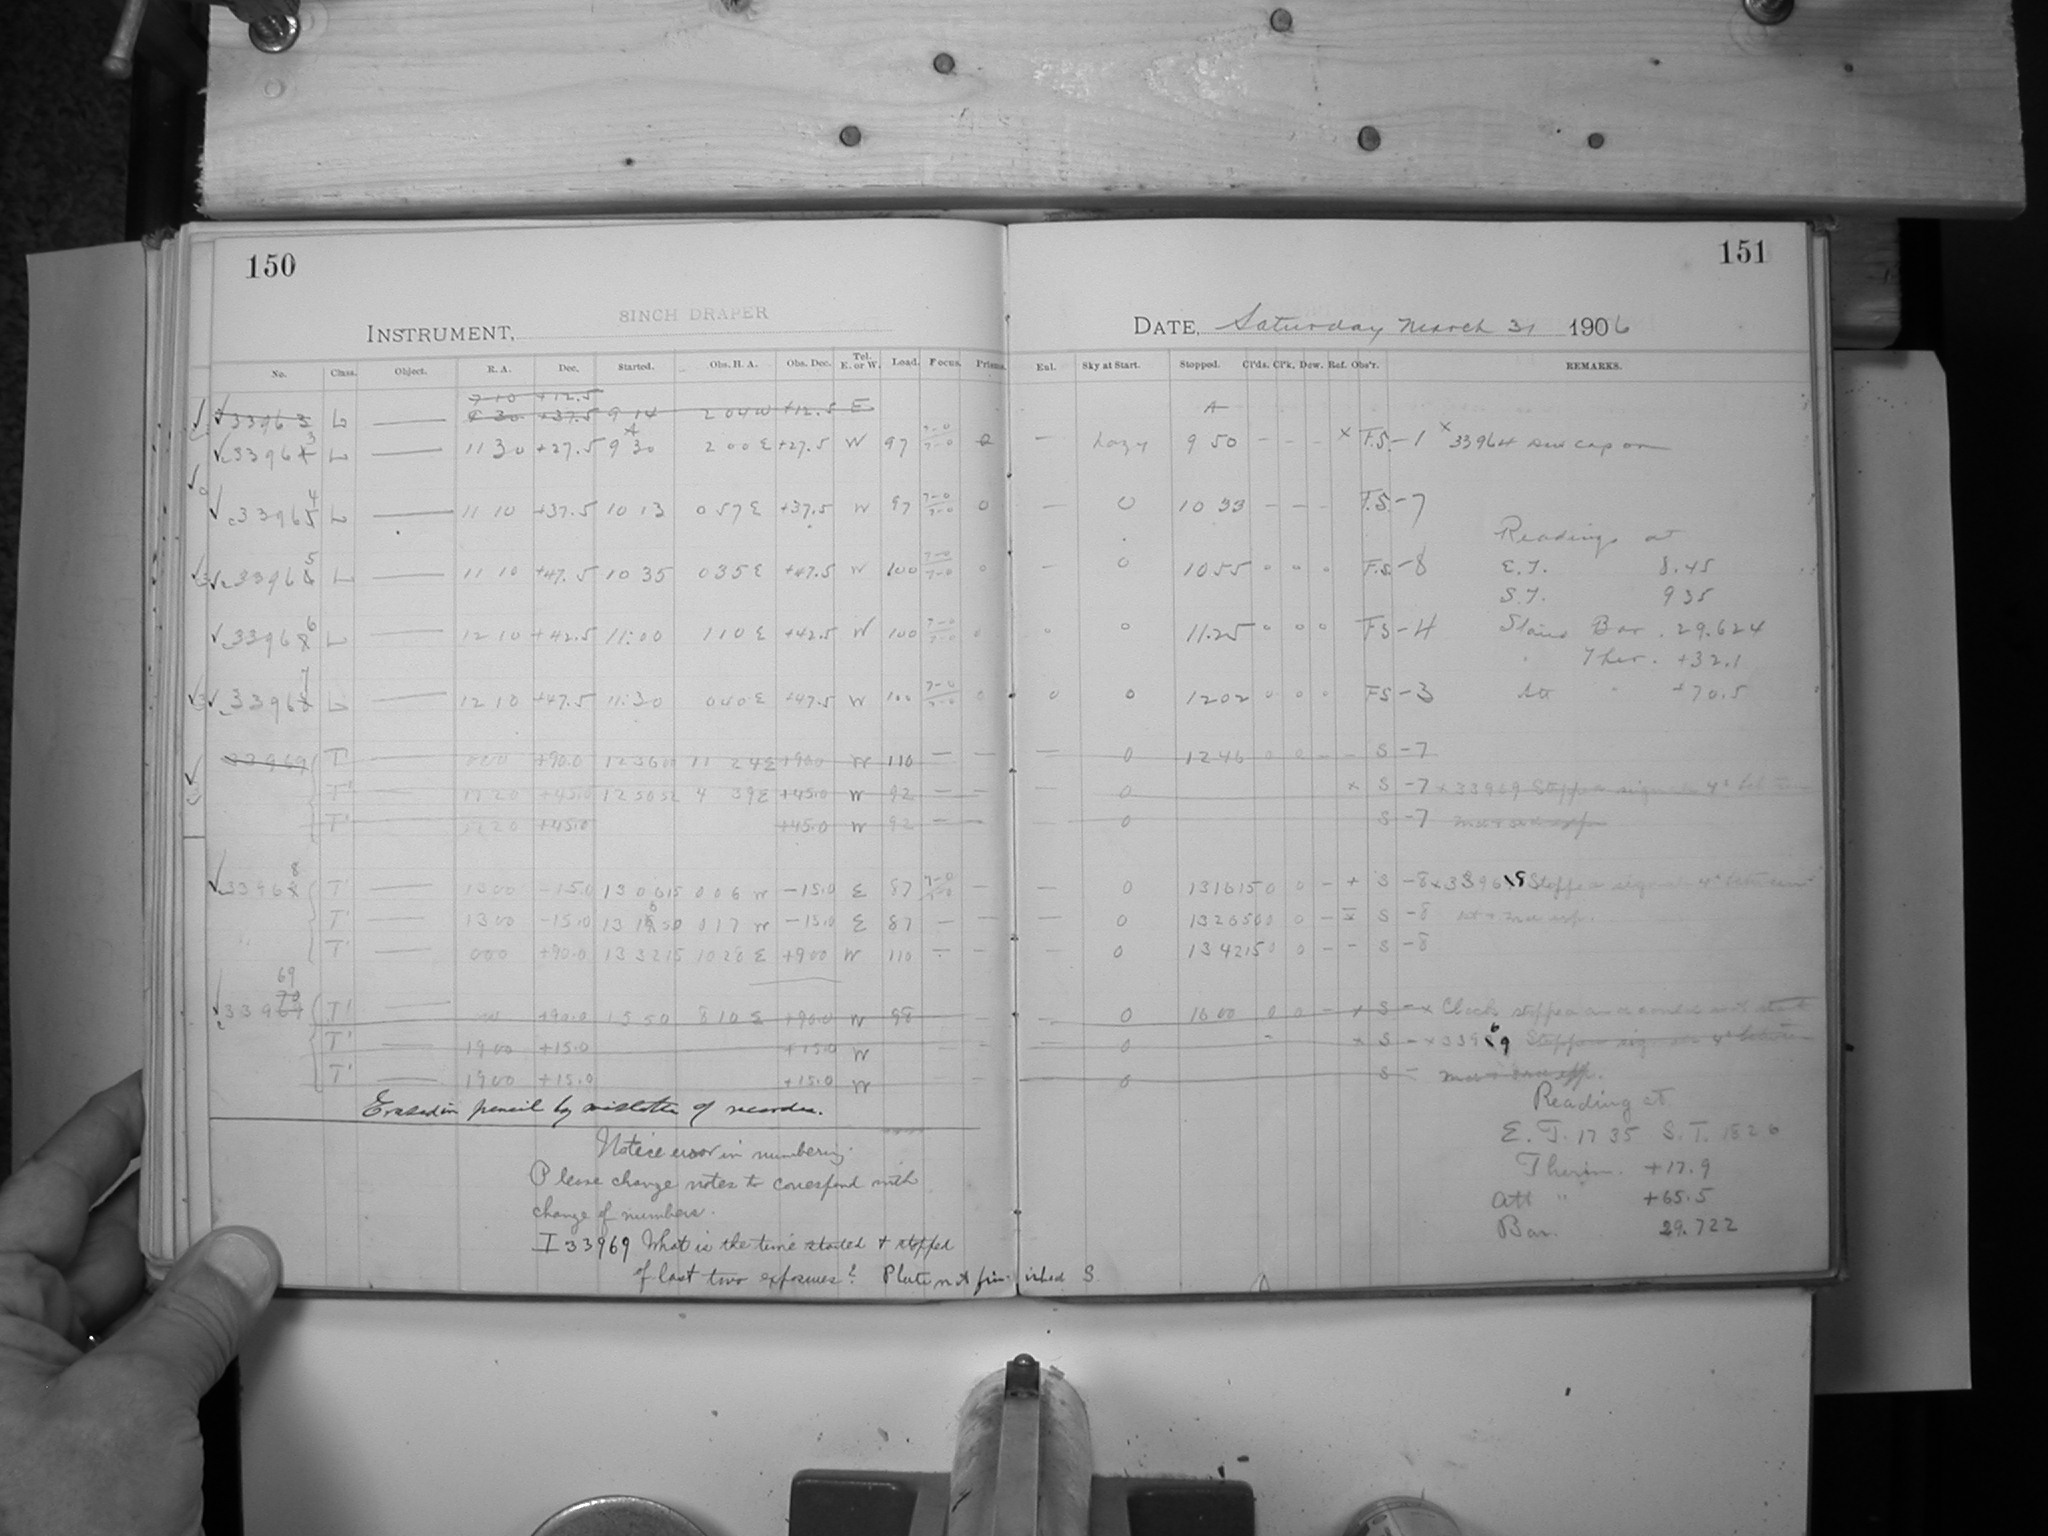 150
8INCH DRAPER
INSTRUMENT,
No. Class. Object. R. A. Dec. Started. Obs. H. A. Obs. Dec. Tel. E. or W. Load. Focus. Prisms.
7 10 +12.5
33963 L — 6 30 +37.5 9 14 2 04 W +12.5 E
33964 3 L — 11 30 +27.5 9 30 2 00 E +27.5 W 97 7-0 7-0 0
33965 4 L — 11 10 +37.5 10 13 0 57 E +37.5 W 97 7-0 7-0 0
3396 5 L — 11 10 +47.5 10 35 0 35 E +47.5 W 100 7-0 7-0 0
3396 6 L — 12 10 +42.5 11:00 1 10 E +42.5 W 100 7-0 7-0 0
33968 7 L — 12 10 +47.5 11:30 0 40 E +47.5 W 100 7-0 7-0 0
33969 T' 000 +90.0 123600 11 24 E +900 W 110 — —
T' 17 20 +45.0 125052 4 39 E +45.0 W 92 — —
T' 17 20 +45.0 +45.0 W 92 — —
3396 8 T' — 1300 -15.0 130615 006 W -15.0 E 87 7-0 7-0
T' — 1300 -15.0 13 1650 017 W -15.0 E 87 — —
T' — 000 +90.0 133215 1020 E +900 W 110 —
69
70
33964 T' — +90.0 1550 8 10 E +90.0 W 98 —
T' — 1900 +15.0 +15.0 W
T' — 1900 +15.0 +15.0 W
Erased in pencil by mistake of recorder.
Notice error in numbering.
Please change notes to correspond with
change of numbers.
I 33969 What is the time started + stopped
of last two exposures? Plate not finished S
151
DATE, Saturday March 31 1906
Ent. Sky at Start. Stopped. Cl'ds. Cl'k. Dew. Ref. Obs'r. REMARKS.
— hazy 9 50 - - - x F.S. -1 x 33964 dew cap on
— 0 10 33 - - - F.S. -7
Readings at
— 0 1055 0 0 0 F.S. -8 E.T. 8.45
S.T. 9 35
0 0 11.25 0 0 0 FS -4 Stand Bar. 29.624
" Ther. +32.1
0 0 1202 0 0 0 FS -3 Att " +70.5
— 0 1246 0 0 - - S -7
— 0 x S -7 x 33969 Stopped signals 4s between
— 0 S -7
— 0 1316150 0 - + S -8 x 33968 Stopped signals 4s between
— 0 1326500 0 - x S -8 1st + 2nd exp.
0 1342150 0 - - S -8
— 0 1600 0 0 - x S - x Clock stopped
— 0 - x S - x 33969 Stopped signals 4s between
0 S -
Reading at
E. T. 17 35 S. T. 1826
Therm. +17.9
Att " +65.5
Bar. 29.722